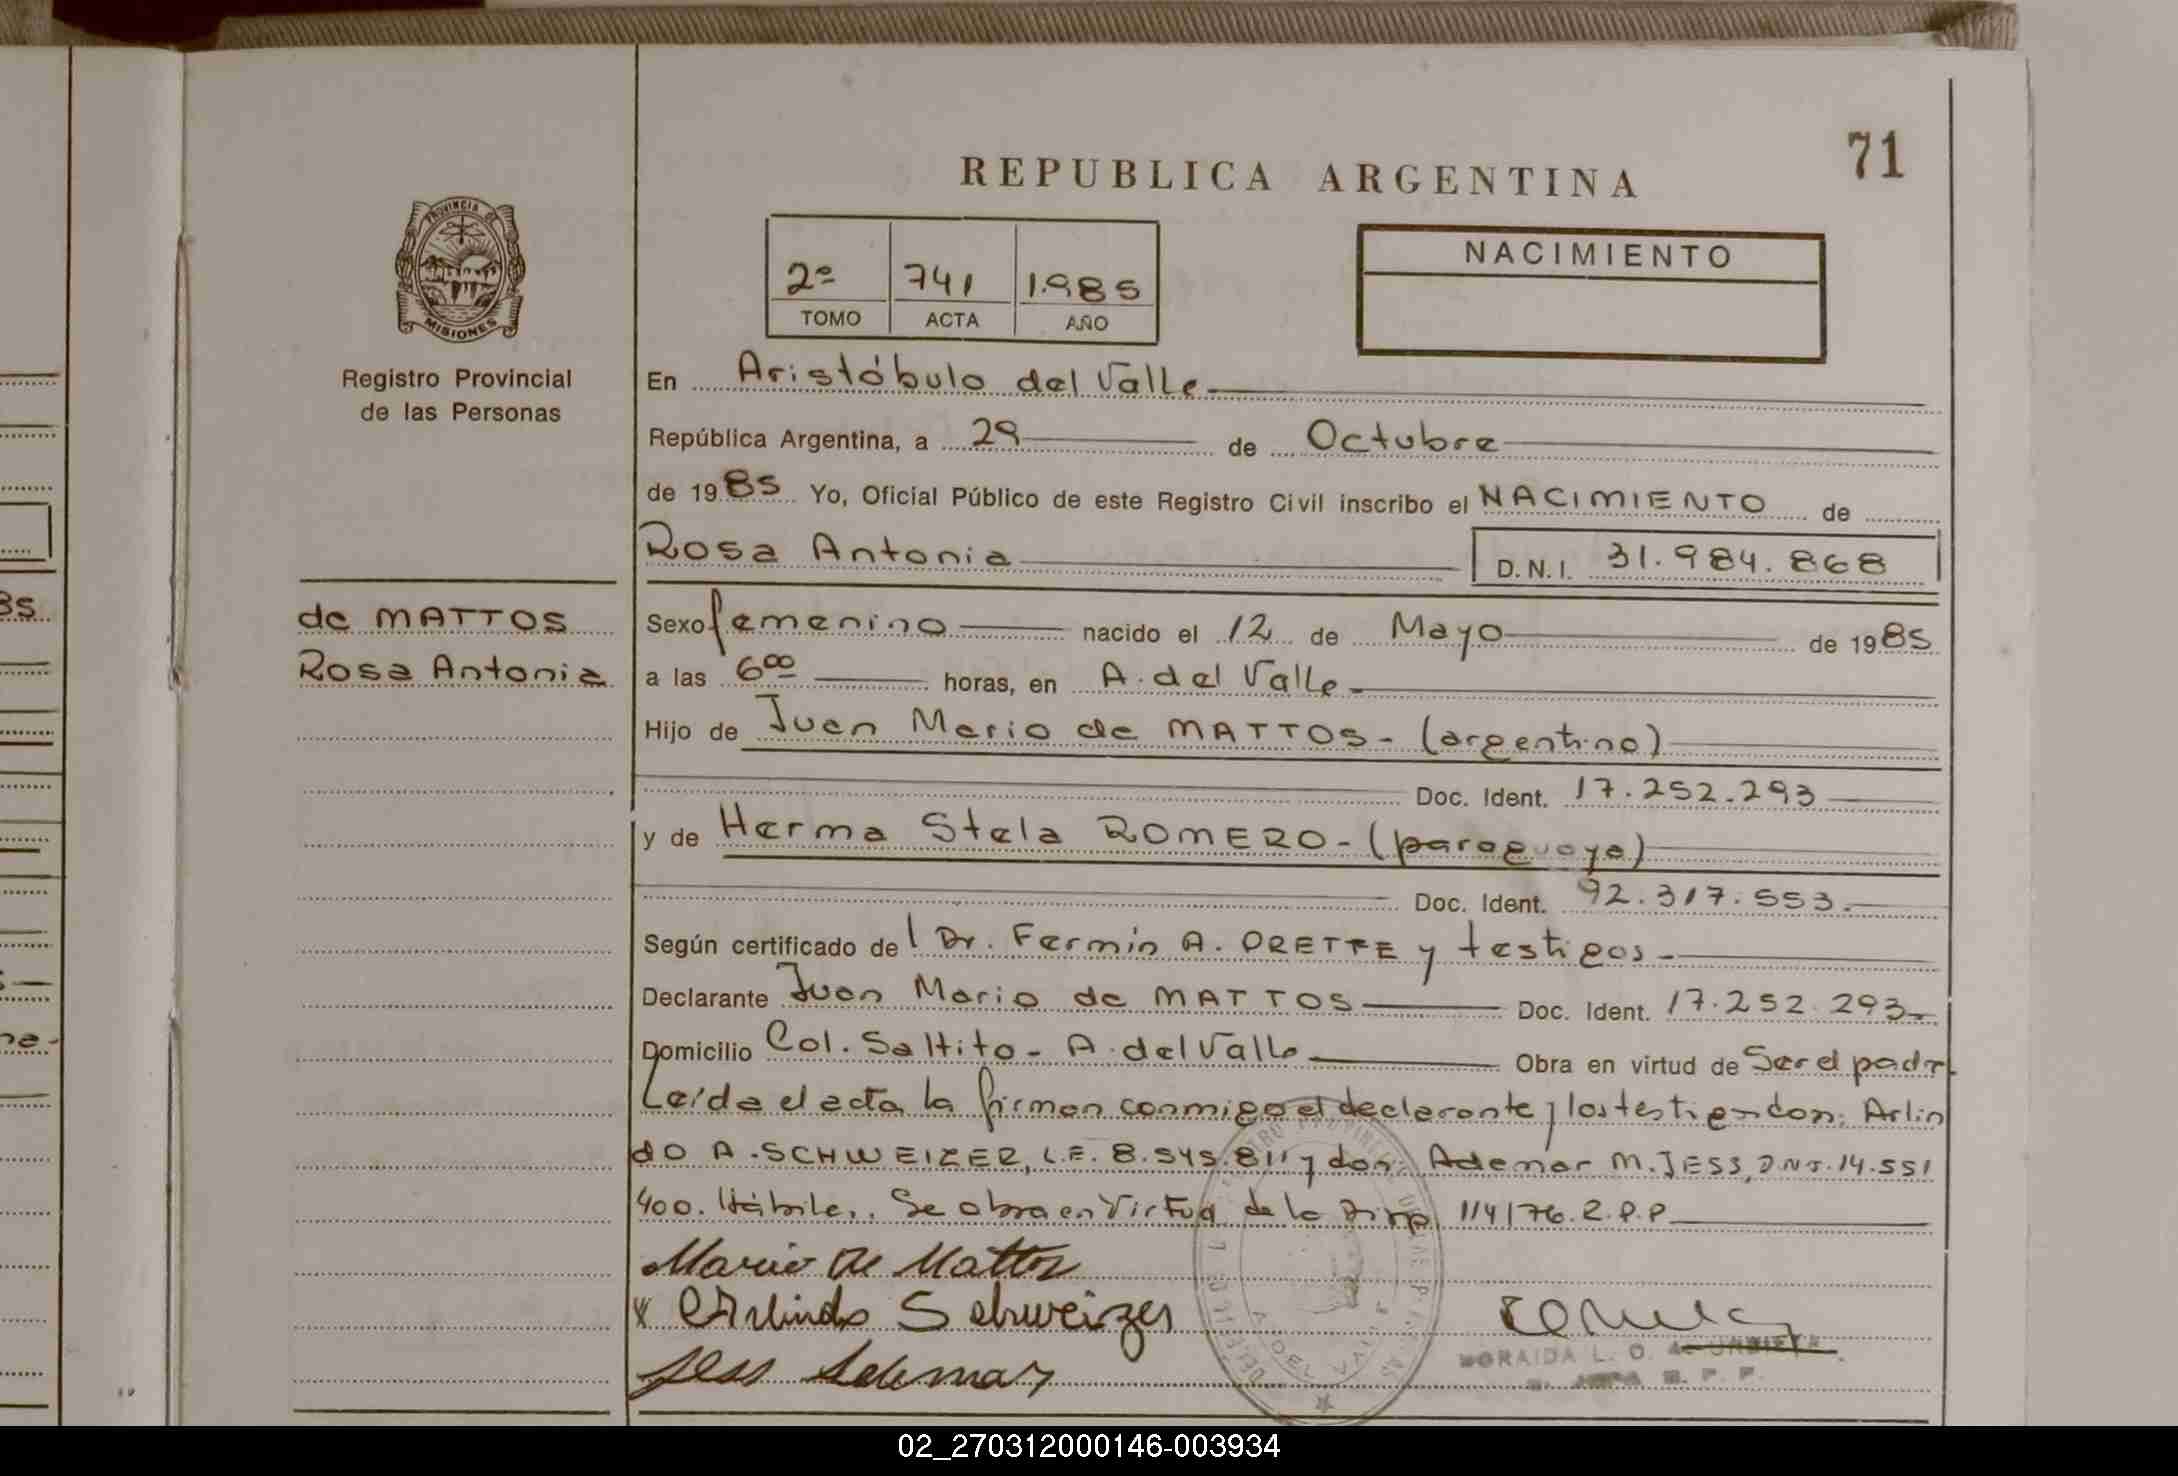 71
REPUBLICA ARGENTINA
PROVINCIA DE
MISIONES
Registro Provincial
de las Personas
2º 741 1.985
TOMO ACTA AÑO
NACIMIENTO
En Aristóbulo del Valle
República Argentina, a 29 de Octubre
de 1985 Yo, Oficial Público de este Registro Civil inscribo el NACIMIENTO de
Rosa Antonia D.N.I. 31.984.868
de MATTOS
Rosa Antonia
Sexo femenino nacido el 12 de Mayo de 1985
a las 6⁰⁰ horas, en A. del Valle
Hijo de Juan Mario de MATTOS - (argentino)
Doc. Ident. 17.252.293
y de Herma Stela ROMERO - (paraguaya)
Doc. Ident. 92.317.553.
Según certificado del Dr. Fermín A. y testigos
Declarante Juan Mario de MATTOS Doc. Ident. 17.252.293
Domicilio Col. Saltito - A. del Valle Obra en virtud de Ser el padr
Leída el acta la firman conmigo el declarante y los testigos don: Arlin
do A. SCHWEIZER, L.E. 8.545.811 y don: Ademar M. JESS, D.N.I. 14.551
400. Hábiles. Se obra en Virtud de la Disp. 114/76. R.P.P
Mario De Mattos
Arlindo Schweizer
Jess Ademar
A. DEL VALLE
MORAIDA L. O. de
02_270312000146-003934